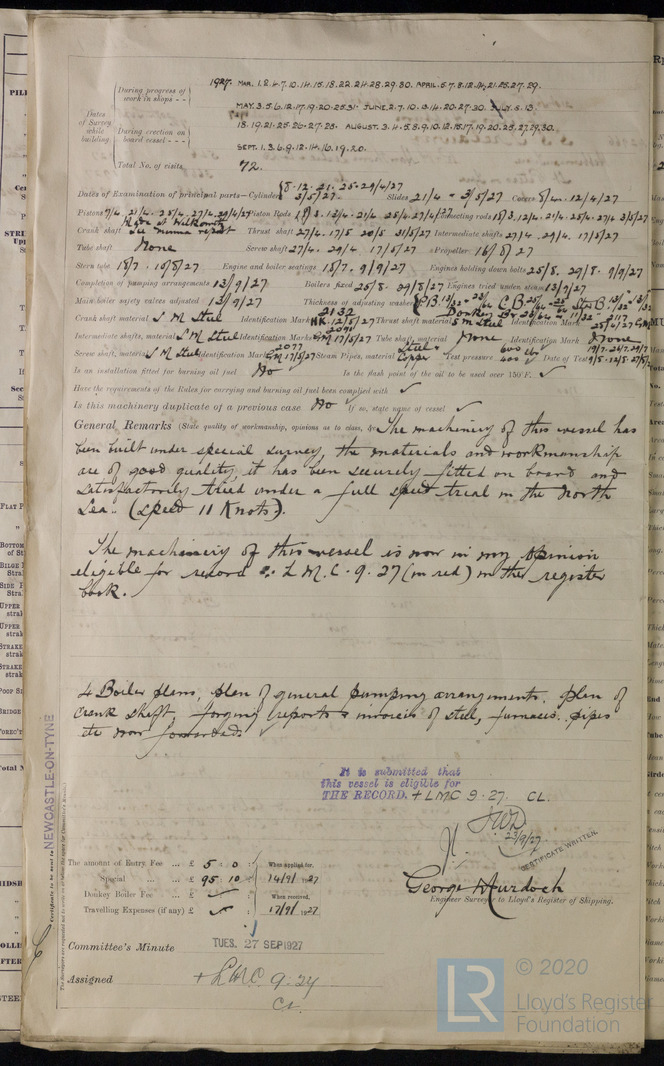 1927. MAR. 1. 2. 4. 7. 10. 14. 15. 18. 22. 24. 28. 29. 30. APRIL. 5. 7. 8. 12. 21. 25. 27. 29.
During progress of work in shops - -
MAY. 3. 5. 6. 12. 17. 19. 20. 25. 31. JUNE. 2. 7. 10. 13. 14. 20. 27. 30. JULY. 8. 13.
Dates of Survey while building
During erection on board vessel - - -
18. 19. 21. 25. 26. 27. 28. AUGUST. 3. 4. 5. 8. 9. 10. 12. 15. 17. 19. 20. 25. 27. 29. 30.
SEPT. 1. 3. 6. 9. 12. 14. 16. 19. 20.
Total No. of visits 72.
Dates of Examination of principal parts—Cylinders 8. 12. 21. 25. 29/4/27 3/5/27 Slides 21/4 - 3/5/27 Covers 8/4. 12/4/27
Pistons 7/4. 21/4. 25/4. 27/4. 29/4/27 Piston Rods 18/3. 12/4. 21/4. 25/4. 27/4 Connecting rods 18/3. 12/4. 21/4. 25/4. 27/4 3/5/27
Crank shaft Thrust shaft 27/4. 17/5 20/5 31/5/27 Intermediate shafts 27/4. 29/4. 17/5/27
Tube shaft None Screw shaft 27/4. 29/4 17/5/27 Propeller 16/8/27
Stern tube 18/7. 10/8/27 Engine and boiler seatings 18/7. 9/9/27 Engines holding down bolts 25/8. 29/8. 9/9/27
Completion of pumping arrangements 13/9/27 Boilers fixed 25/8. 29/8/27 Engines tried under steam 13/9/27
Main boiler safety valves adjusted 13/9/27 Thickness of adjusting washers
Crank shaft material S M Steel Identification Mark 2132 HK. 12/5/27 Thrust shaft material S M Steel Identification Mark 2117
Intermediate shafts, material S M Steel Identification Marks 2091 GM 17/5/27 Tube shaft, material None Identification Mark None
Screw shaft, material S M Steel Identification Mark 2077 GM 17/5/27 Steam Pipes, material Steel & Copper Test pressure 600 lb Date of Test
Is an installation fitted for burning oil fuel No Is the flash point of the oil to be used over 150°F. ✓
Have the requirements of the Rules for carrying and burning oil fuel been complied with ✓
Is this machinery duplicate of a previous case No If so, state name of vessel ✓
General Remarks (State quality of workmanship, opinions as to class, &c. The machinery of this vessel has
been built under special survey, the materials and workmanship
are of good quality, it has been securely fitted on board and
satisfactorily tried under a full speed trial in the North
Sea. (Speed 11 Knots).
The machinery of this vessel is now in my opinion
eligible for record + L M C. 9. 27 (in red) in the register
book.
4 Boiler plans, plan of general pumping arrangements, plan of
crank shaft, forging reports & invoices of steel, furnaces, pipes
etc now forwarded
It is submitted that
this vessel is eligible for
THE RECORD. + LMC 9. 27. CL.
23/9/27
CERTIFICATE WRITTEN.
NEWCASTLE-ON-TYNE
Certificate to be sent to
The amount of Entry Fee ... £ 5 : 0 : When applied for,
Special ... £ 95 . 10 : 14/9/1927
Donkey Boiler Fee ... £ ✓ : When received,
Travelling Expenses (if any) £ ✓ : 17/9/1927
George Murdoch
Engineer Surveyor to Lloyd's Register of Shipping.
Committee's Minute TUES. 27 SEP 1927
Assigned + LMC 9.27
CL.
LR © 2020
Lloyd's Register
Foundation